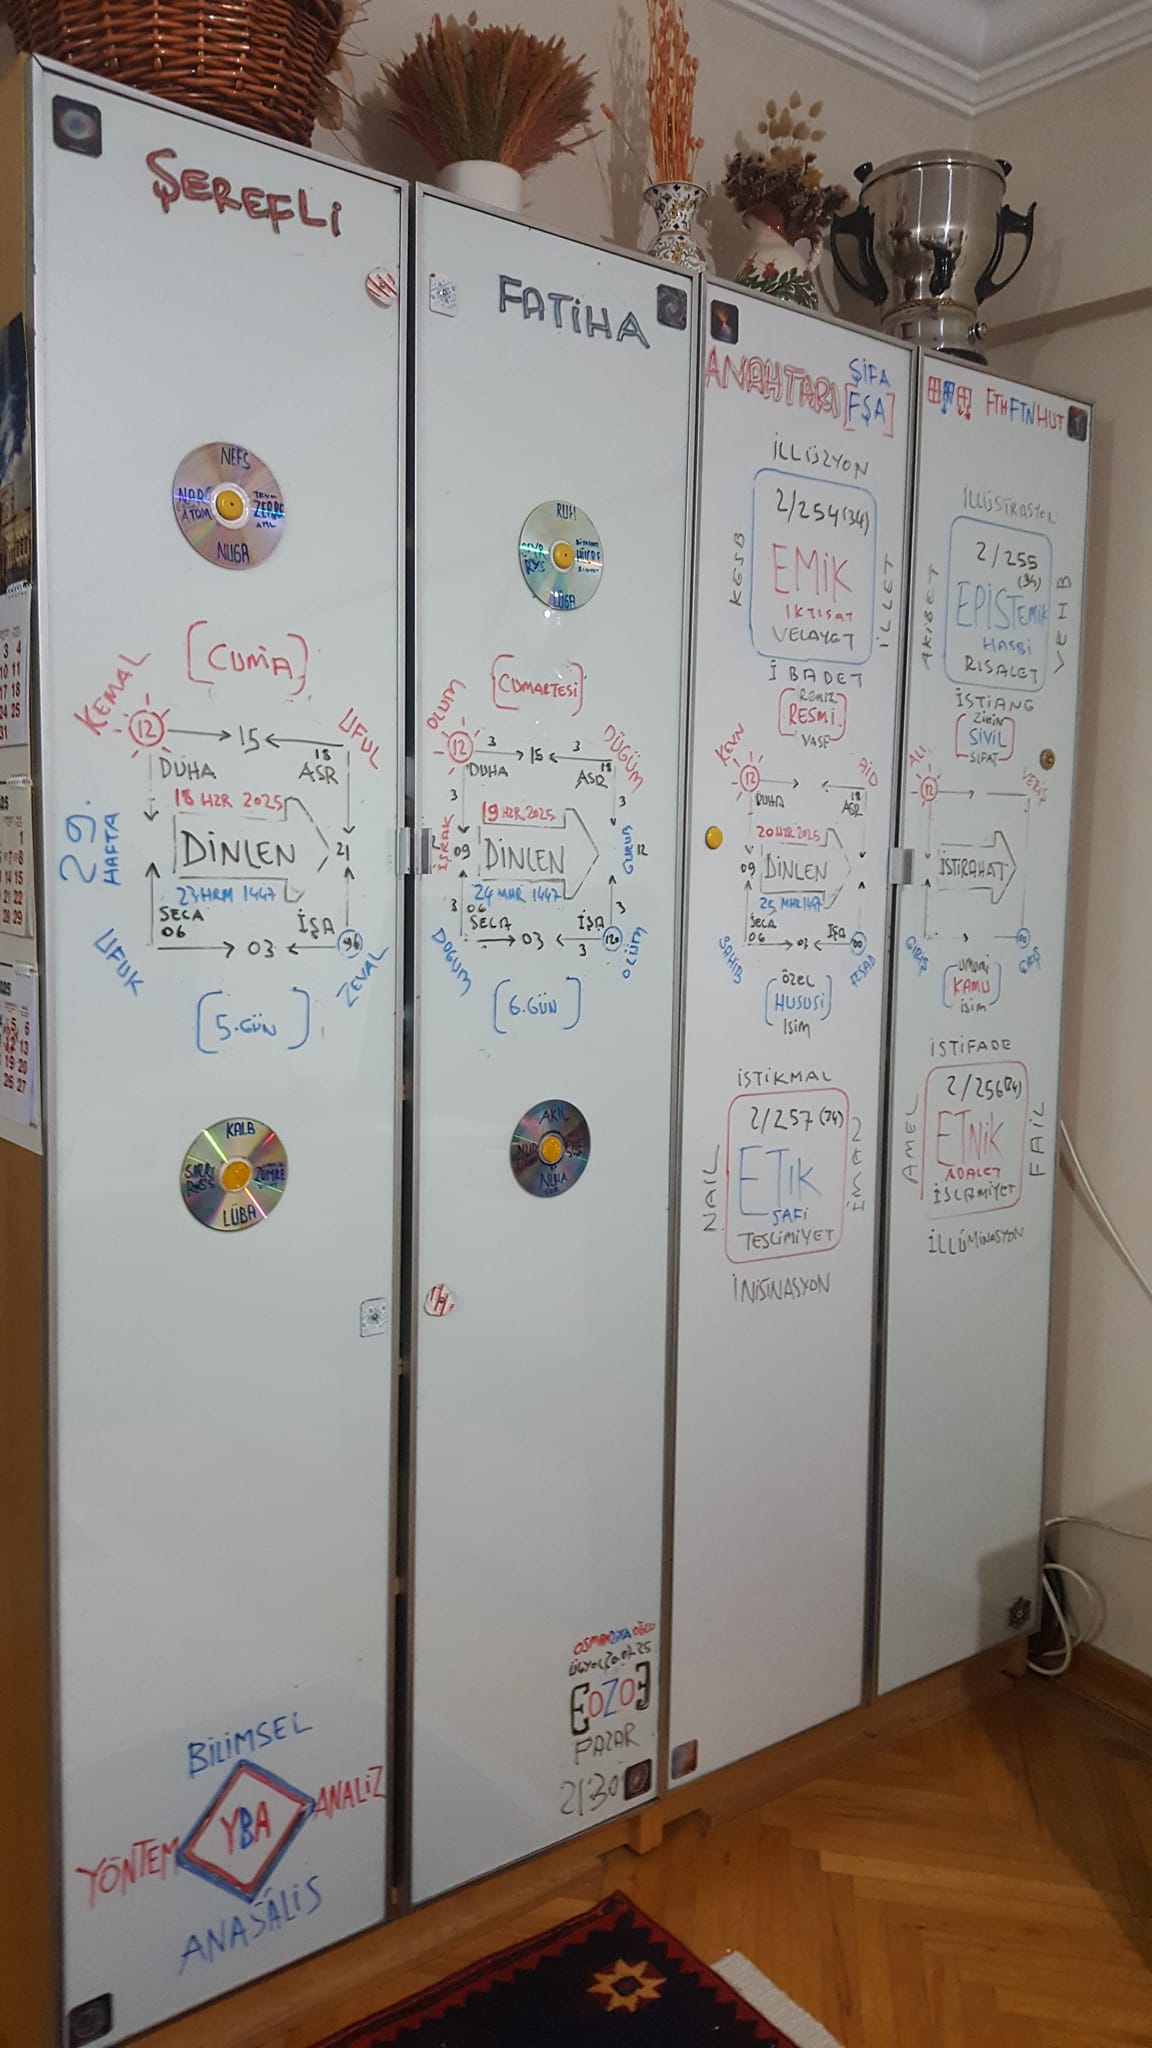 ŞEREFLİ
NEFS
ATOM
ZERRE
AML
NUGA
[CUMA]
KEMAL
UFUL
12
15
18
DUHA
ASR
29.
HAFTA
18 HZR 2025
DİNLEN
21
23 HRM 1447
SECA
06
İŞA
UFUK
03
96
ZEVAL
[5.GÜN]
KALB
SIRRI
ZÜMRE
LÜBA
BİLİMSEL
YÖNTEM
YBA
ANALİZ
ANASALİS
FATİHA
RUH
RYS
HÜCRE
LÜGA
[CUMARTESİ]
OLUM
DÜĞÜM
12
3
15
3
18
DUHA
ASR
3
3
İŞRAK
09
19 HZR 2025
DİNLEN
GURUB
12
24 MHR 1447
3
06
SECA
İŞA
3
DOĞUM
03
3
120
ÖLÜM
[6.GÜN]
AKIL
NUHA
ÜÇYOL 20.07.25
EOZOE
PAZAR
21:30
ANAHTARI
ŞİFA
[FŞA]
İLLÜZYON
2/254(34)
KESB
EMİK
İKTİSAT
VELAYET
İLLET
İBADET
REMİZ
[RESMİ]
VASF
KEVN
AİD
12
DUHA
18
ASR
20 HZR 2025
09
DİNLEN
25 MHR 1447
SECA
06
03
İŞA
00
SAHİB
FESAD
ÖZEL
[HUSUSİ]
İSİM
İSTİKMAL
2/257(34)
NAİL
ETİK
SAFİ
TESLİMİYET
İMAN
İNİSİNASYON
FTHFTNHUT
İLLÜSTRASYON
2/255
(34)
AKİBET
EPİSTEMİK
HASBİ
RİSALET
VEHB
İSTİANE
ZİHİN
[SİVİL]
SIFAT
ALI
VERİŞ
12
İSTİRAHAT
GİRİŞ
00
UMUMİ
[KAMU]
İSİM
İSTİFADE
2/256(34)
AMEL
ETNİK
ADALET
İSLAMİYET
FAİL
İLLÜMİNASYON